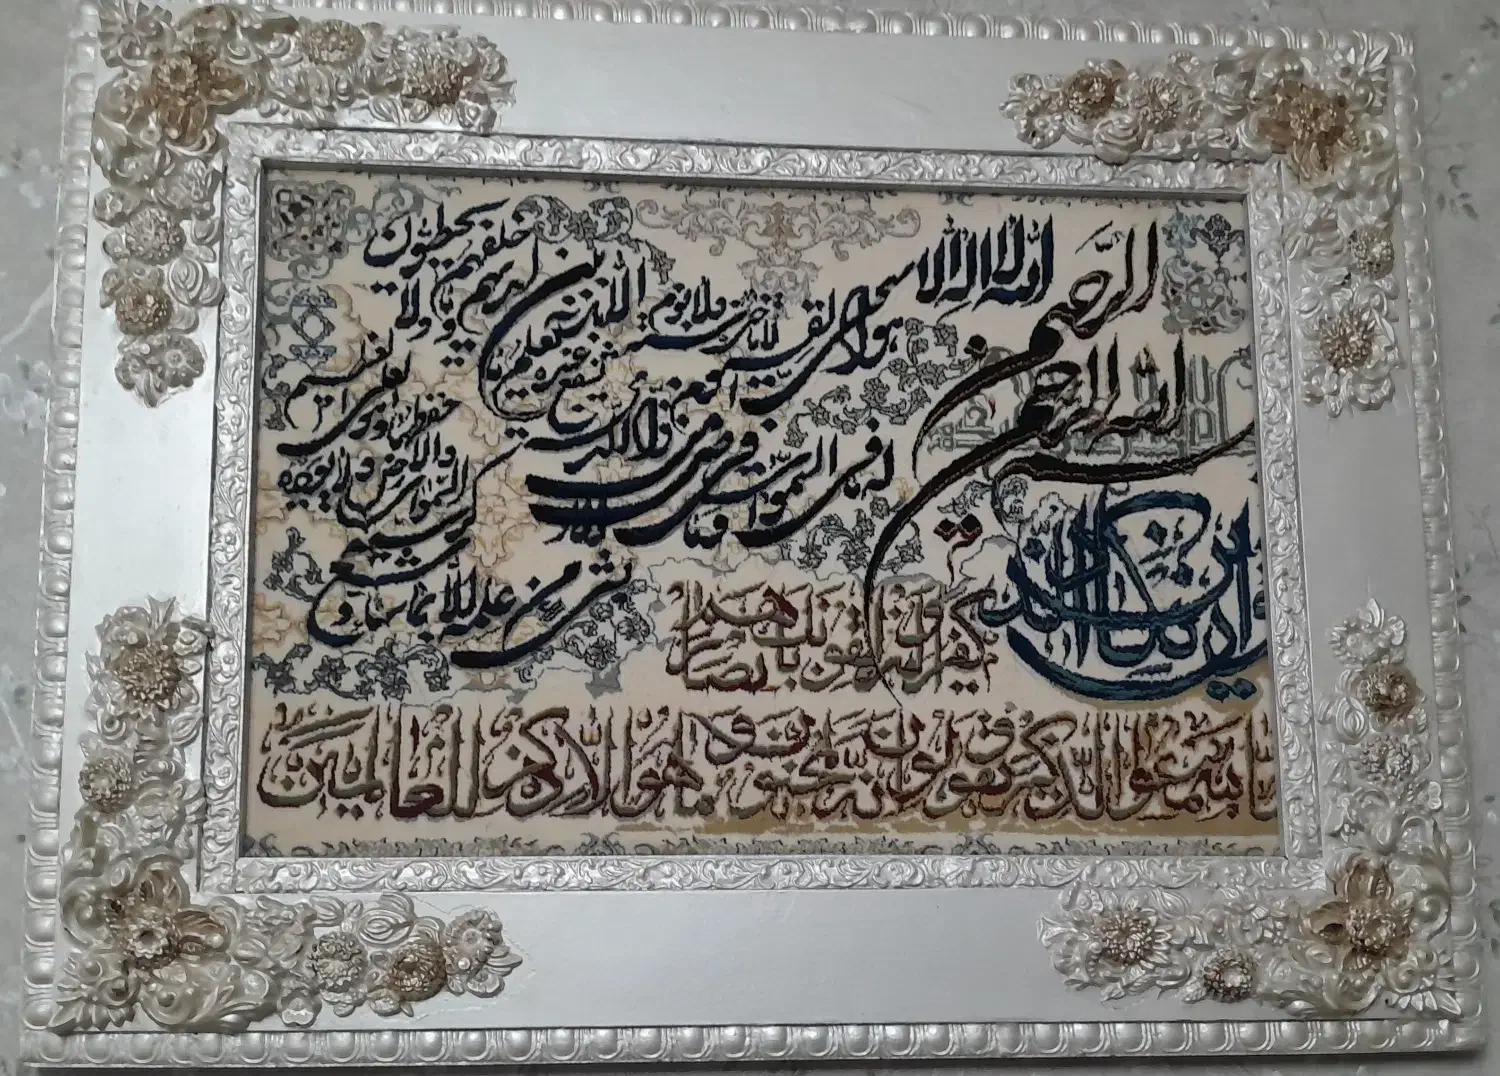 بسم الله الرحمن الرحيم
الله لا اله الا
هو الحي القيوم لا تاخذه سنة ولا نوم
له ما في السموات وما في الارض
من ذا الذي يشفع عنده الا باذنه يعلم ما بين ايديهم وما خلفهم ولا يحيطون
بشيء من علمه الا بما شاء وسع كرسيه
السموات والارض ولا يؤده
حفظهما وهو العلي العظيم
وان يكاد الذين
كفروا ليزلقونك بابصارهم
لما سمعوا الذكر ويقولون انه لمجنون وما هو الا ذكر للعالمين